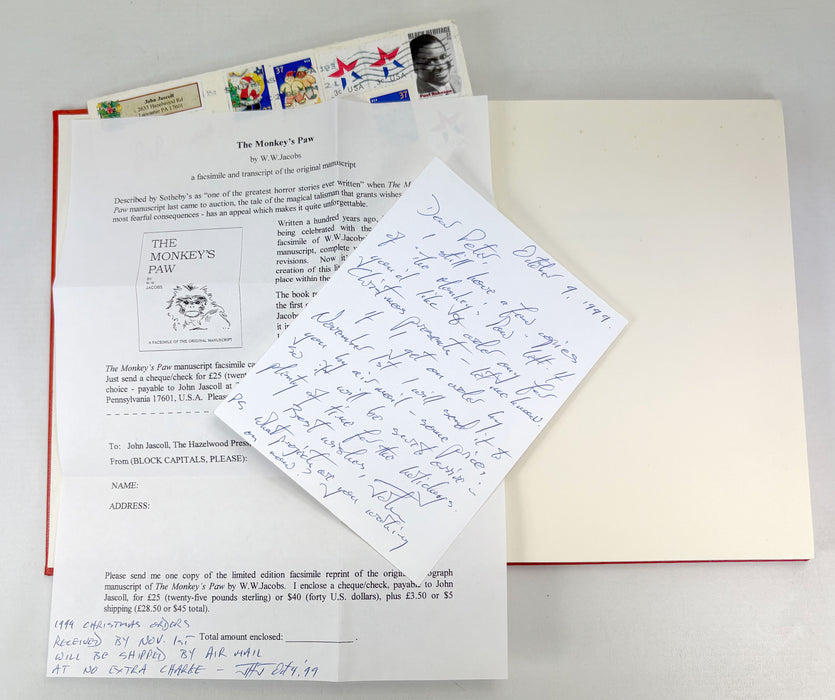 John Jascoll
2633 Hazelwood Rd
Lancaster PA 17601
37
USA
USA
37
BLACK HERITAGE
Paul Robeson
The Monkey's Paw
by W.W.Jacobs
a facsimile and transcript of the original manuscript
Described by Sotheby's as "one of the greatest horror stories ever written" when The M
Paw manuscript last came to auction, the tale of the magical talisman that grants wishes
most fearful consequences - has an appeal which makes it quite unforgettable.
Written a hundred years ago,
being celebrated with the
facsimile of W.W.Jacob
manuscript, complete
revisions. Now it
creation of this
place within the
The book
the first
Jacob
it i
THE
MONKEY'S
PAW
BY
W.W.
JACOBS
A FACSIMILE OF THE ORIGINAL MANUSCRIPT
The Monkey's Paw manuscript facsimile ca
Just send a cheque/check for £25 (twent
choice - payable to John Jascoll at
Pennsylvania 17601, U.S.A. Pleas
To: John Jascoll, The Hazelwood Press
From (BLOCK CAPITALS, PLEASE):
NAME:
ADDRESS:
Please send me one copy of the limited edition facsimile reprint of the original autograph
manuscript of The Monkey's Paw by W.W.Jacobs. I enclose a cheque/check, payable to John
Jascoll, for £25 (twenty-five pounds sterling) or $40 (forty U.S. dollars), plus £3.50 or $5
shipping (£28.50 or $45 total).
Total amount enclosed: ____________ .
1999 CHRISTMAS ORDERS
RECEIVED BY NOV. 1ST
WILL BE SHIPPED BY AIR MAIL
AT NO EXTRA CHARGE - Oct 9, '99
October 9, 1999.
Dear Peter,
I still have a few copies
of "The Monkey's Paw" left if
you'd like to order any for
Christmas presents - let me know.
If I get an order by
November 1st I will send it to
you by air mail - same price,
so it will be sure to arrive in
plenty of time for the holidays.
Best wishes, John
PS what projects are you working
on now?